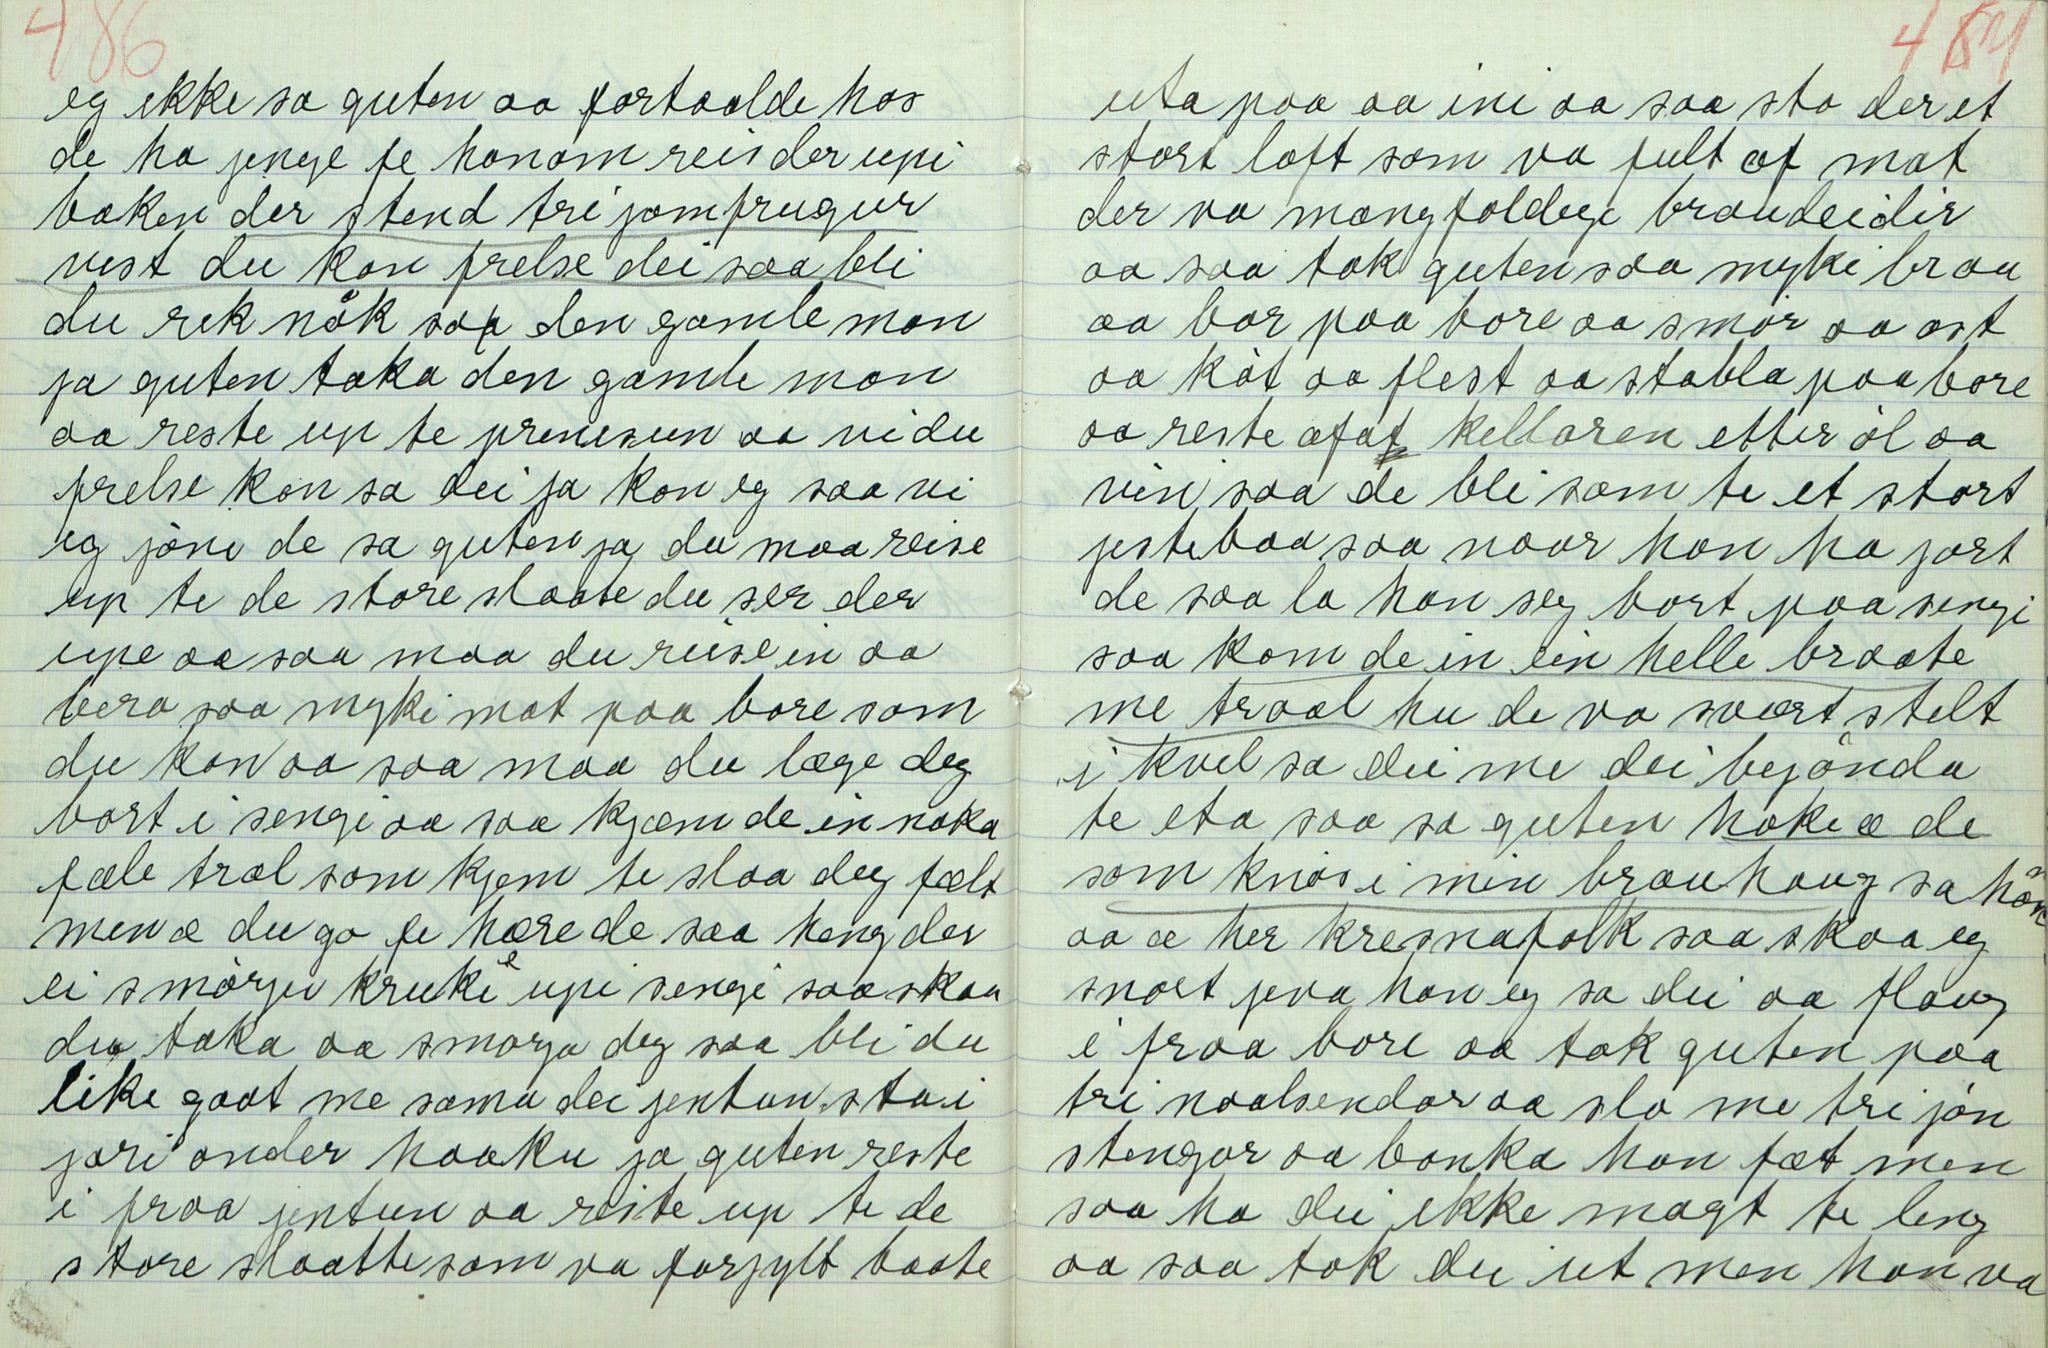 486
eg ikke sa guten aa fortaalde hos
de ha jenge te honom reis der upi
baken der stend tri jomfrugur
vist du kan frelse dei saa bli
du rik nåk saa den gamle man
ja guten taka den gamle man
aa reste up te prinsesun aa vi du
frelse kon sa dei ja kon eg saa vi
eg jöre de sa guten ja du maa reise
up te de store slaate du ser der
upe aa saa maa du reise in aa
bera saa myki mat paa bore som
du kan aa saa maa du læge deg
bort i sengi aa saa kjæm de in noka
fæle tral som kjem te slaa deg fælt
men æ du go te hære de saa heng der
ei smörju kruke upi sengi saa skaa
du taka aa smorja deg saa bli du
like goot me soma dei jentun sto i
jori onder haaku ja guten reste
i fraa jentun aa reiste up te de
store slaatte som va forjylt baate
484
uta paa aa ini aa saa sto der et
stort loft som va fult af mat
der va mangfoldige braudeidir
aa saa tok guten saa myki brau
aa bar paa bore aa smör aa ost
aa köt aa flest aa stabla paa bore
aa reste afat kellaren etter öl aa
vin saa de bli som te et stort
jestebaa saa naar han ha jort
de saa la han seg bort paa sengi
saa kom de in ein helle braate
me traal hu de va svært stelt
i kvel sa dei me dei bejönda
te eta saa sa guten hoke æ de
som knös i min brau haug sa hån
aa æ her kresnafolk saa skaa eg
snart jeva han eg sa dei aa flaug
i fraa bore aa tok guten paa
tri naalsendar aa slo me tri jön
stengor aa banka han fælt men
saa ha dei ikke magt te leng
aa saa tok dei ut men han va